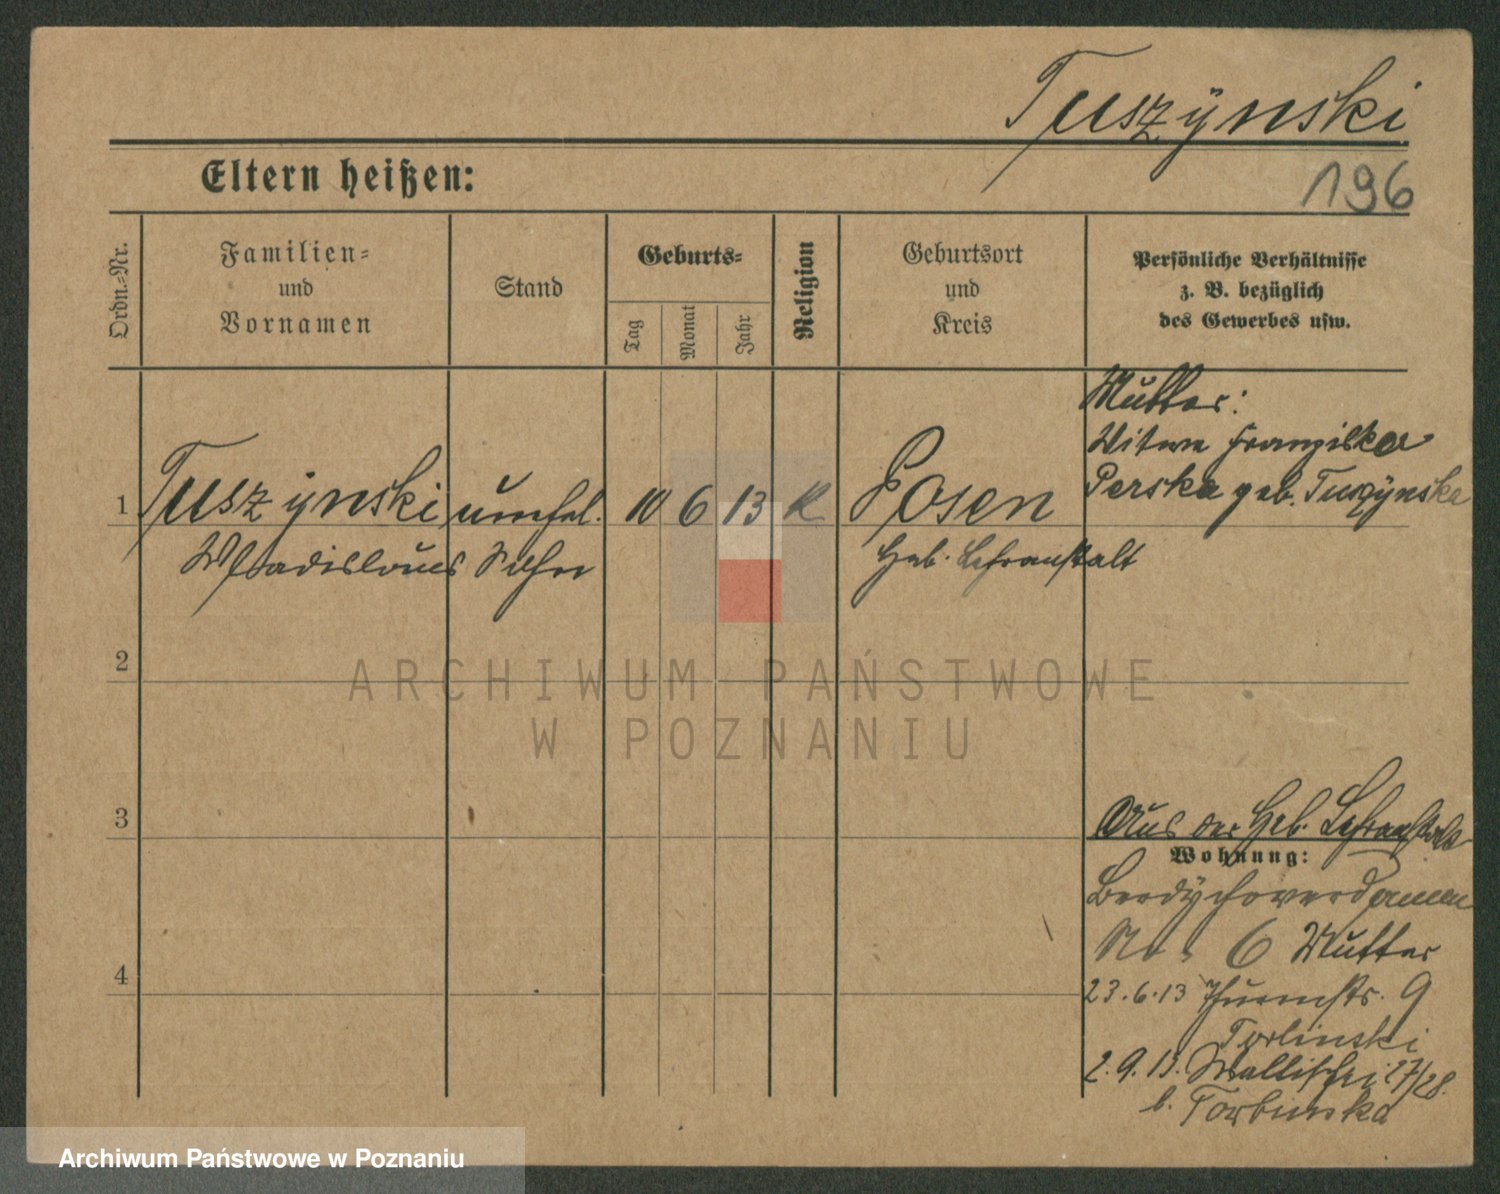 Tuszÿnski
Eltern heißen:
196
Ordn.-Nr.
Familien-
und
Vornamen
Stand
Geburts-
Tag
Monat
Jahr
Religion
Geburtsort
und
Kreis
Persönliche Verhältnisse
z. B. bezüglich
des Gewerbes usw.
Mutter:
Witwe Franziska
Perska geb. Tuszÿnska
1
Tuszÿnski
unehel.
10
6
13
K
Posen
Wladislaus
Sohn
Heb. Lehranstalt
2
ARCHIWUM PAŃSTWOWE
W POZNANIU
3
Aus der Heb. Lehranstalt
Wohnung:
Berdÿchowerdamm
No. 6 Mutter
4
23.6.13 Thurmstr. 9
2.9.13. Wallischei 27/28.
b.
Archiwum Państwowe w Poznaniu